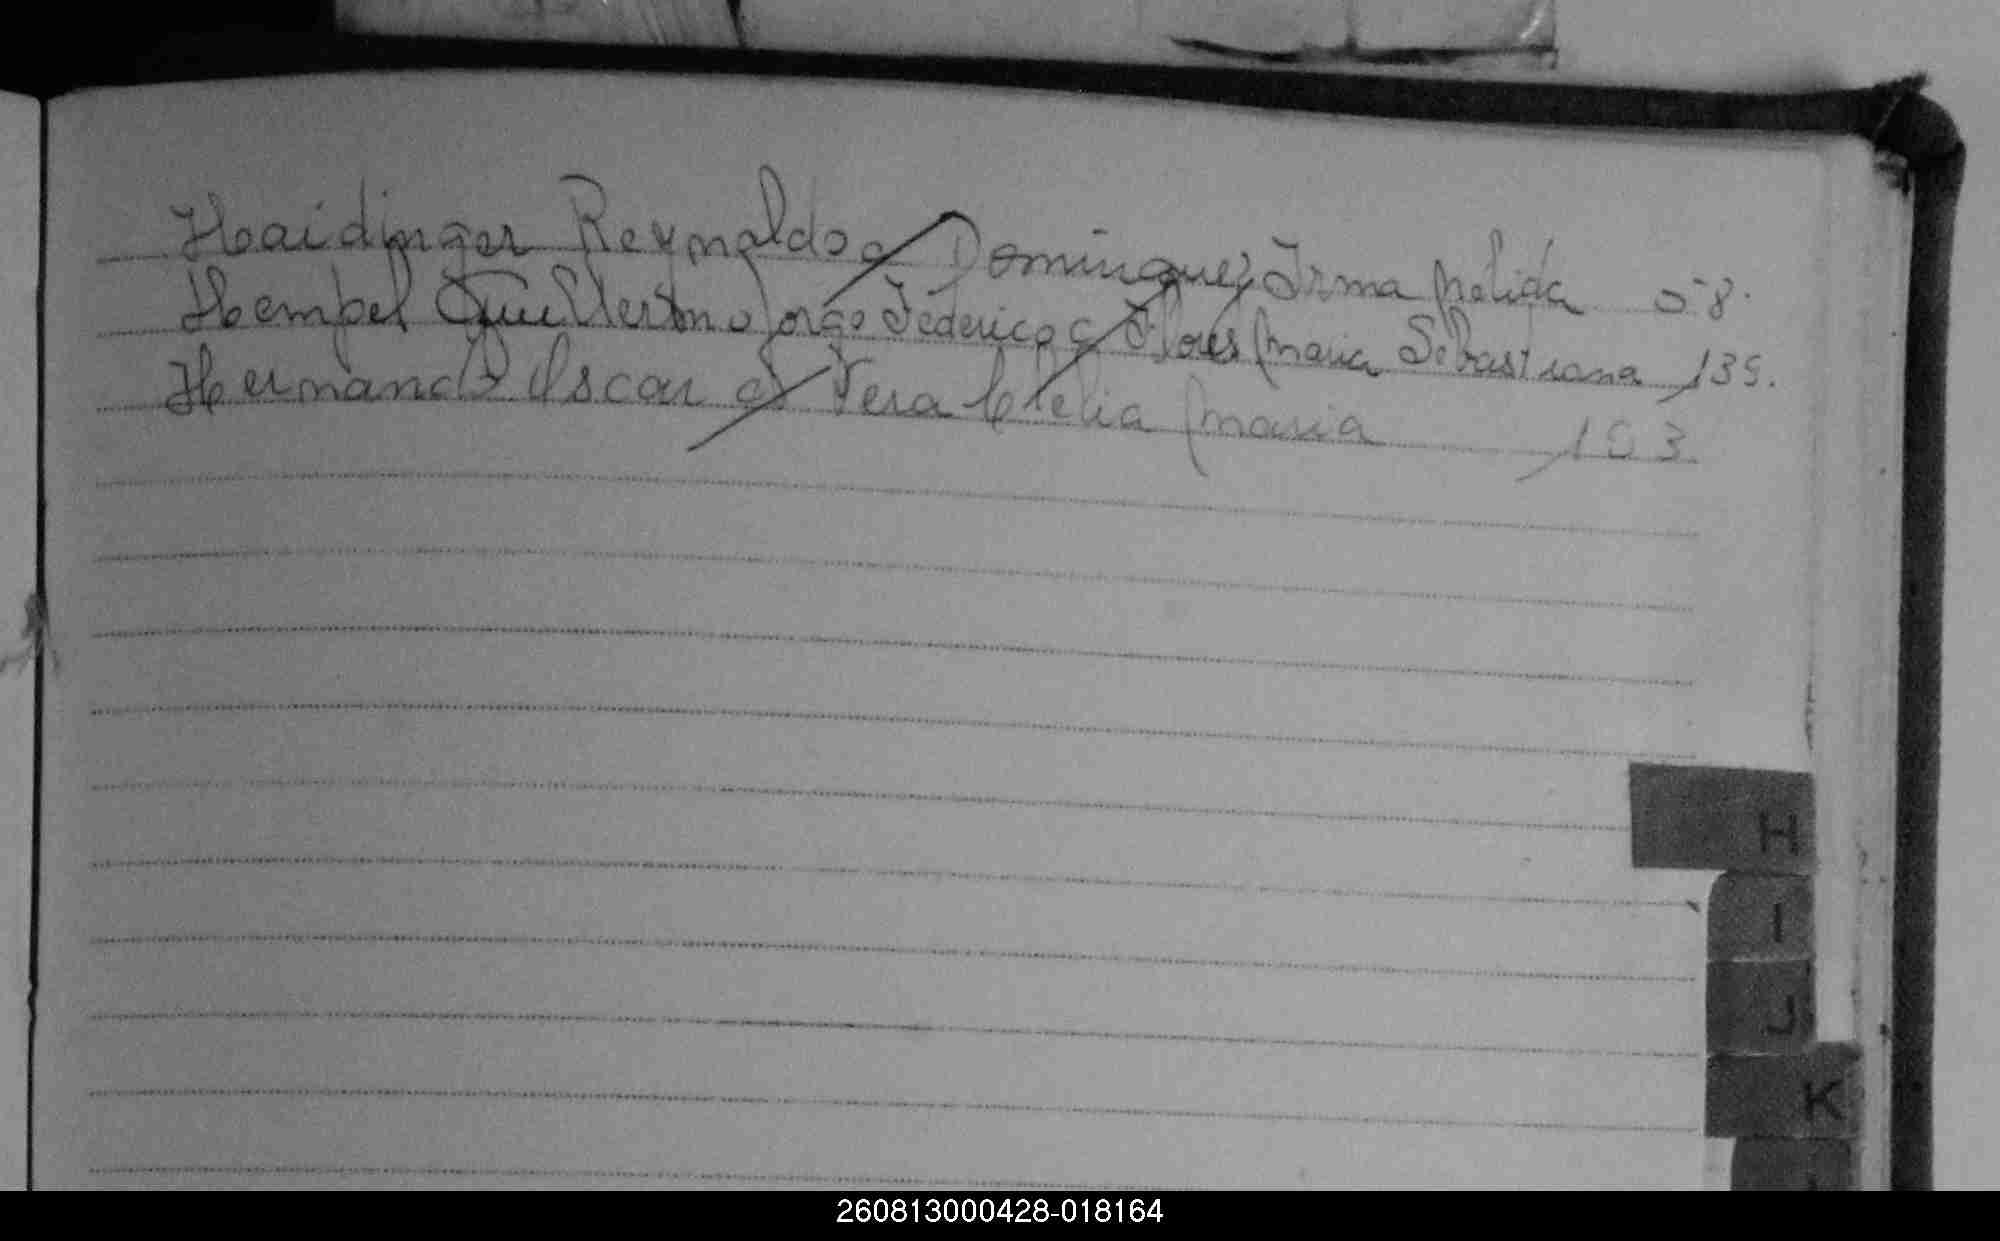 Haidinger Reynaldo c/ Dominguez Irma Nelida 58.
Hempel Guillermo Jorge Federico c/ Flores Maria Sebastiana 135.
Hernandez Oscar c/ Vera Clelia Maria 103.
H
I
J
K
260813000428-018164